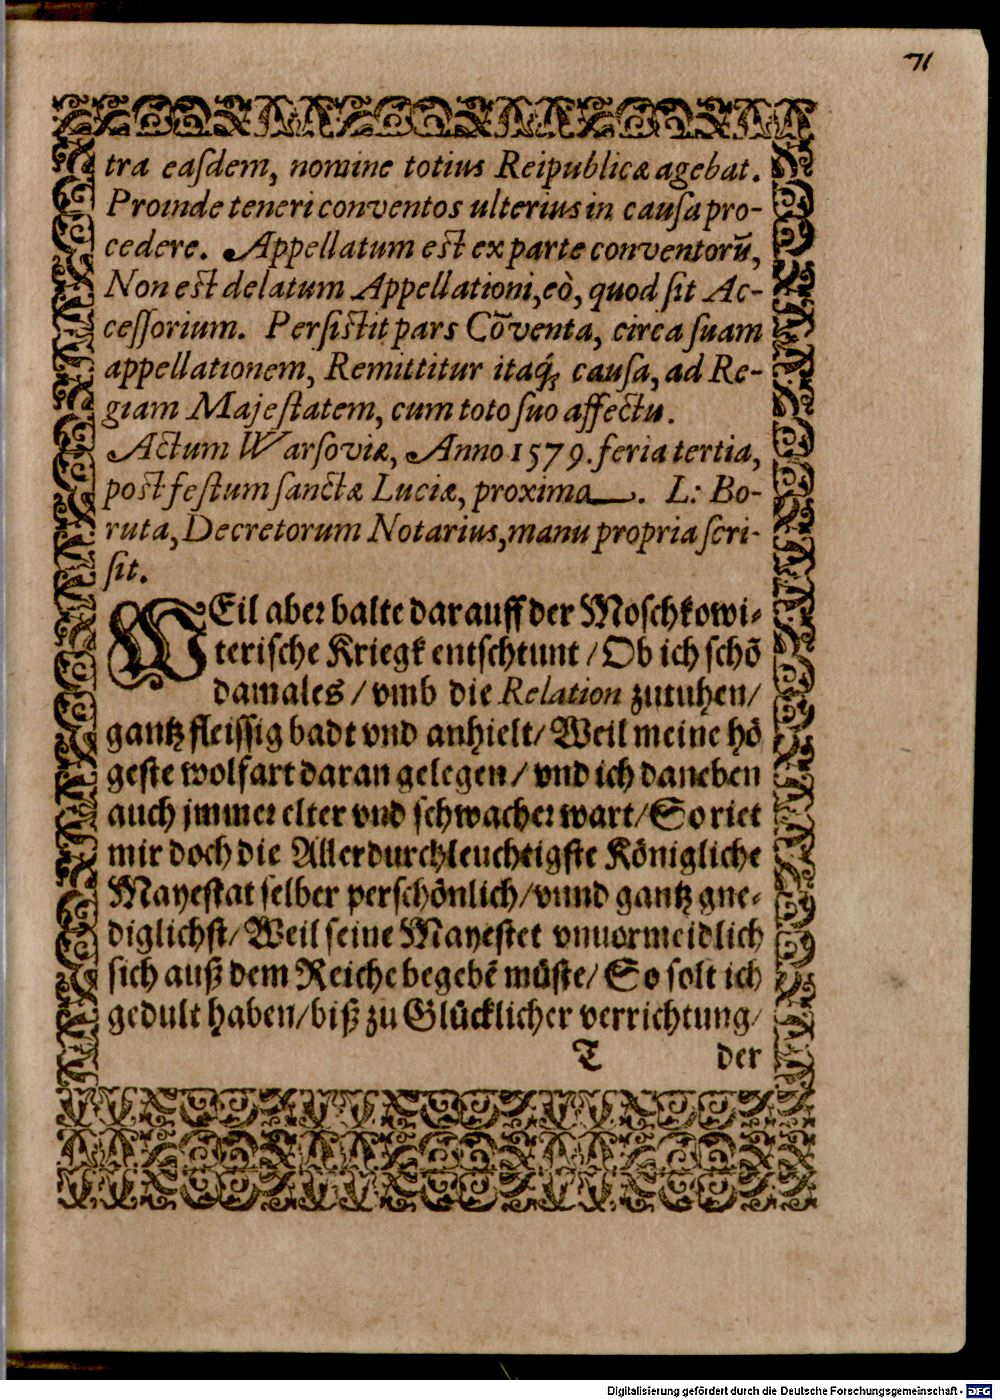 71
tra eaſdem, nomine totius Reipublicæ agebat.
Proinde teneri conventos ulterius in cauſa pro-
cedere. Appellatum eſt ex parte conventorũ,
Non eſt delatum Appellationi, eò, quod ſit Ac-
ceſſorium. Perſiſtit pars Cõventa, circa ſuam
appellationem, Remittitur itaq́; cauſa, ad Re-
giam Majeſtatem, cum toto ſuo affectu.
Actum Warſoviæ, Anno 1579. feria tertia,
poſt feſtum ſanctæ Luciæ, proxima. L: Bo-
ruta, Decretorum Notarius, manu propria ſcri-
ſit.
WEil aber balte darauff der Moſchkowi-
teriſche Kriegk entſchtunt / Ob ich ſchõ
damales / vmb die Relation zutuhen /
gantz fleiſſig badt vnd anhielt / Weil meine hõ
geſte wolfart daran gelegen / vnd ich daneben
auch jmmer elter vnd ſchwacher wart / So riet
mir doch die Allerdurchleuchtigſte Königliche
Mayeſtat ſelber perſchönlich / vnnd gantz gne-
diglichſt / Weil ſeine Mayeſtet vnuormeidlich
ſich auß dem Reiche begebẽ müſte / So ſolt ich
gedult haben / biß zu Glücklicher verrichtung /
T der
Digitalisierung gefördert durch die Deutsche Forschungsgemeinschaft - DFG